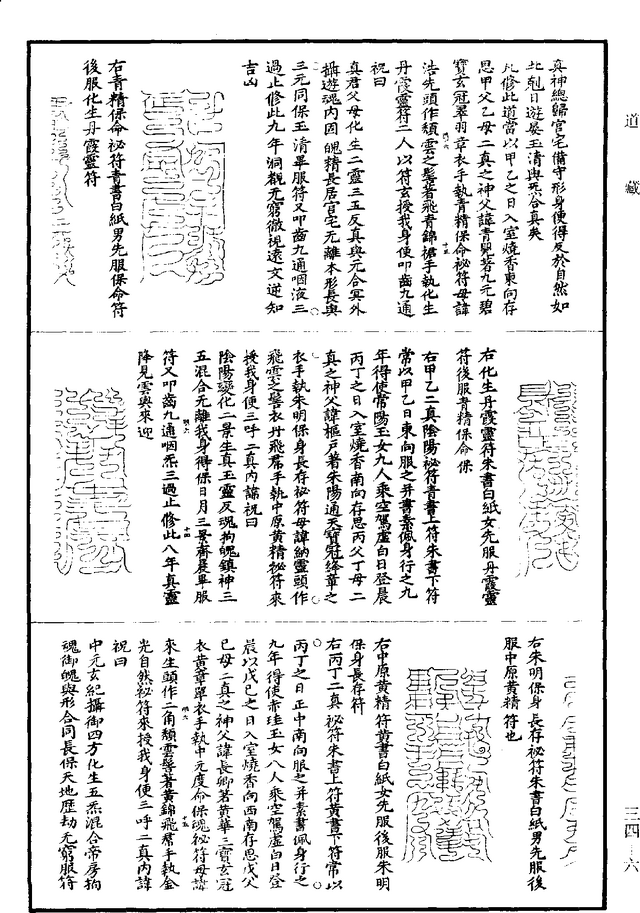 道藏
真神總歸官宅備守形身使得反於自然如
北剋日遊晏玉清與炁合真矣
凡修此道當以甲乙之日入室燒香東向存
思甲父乙母二真之神父諱青輿著九元碧
寶玄冠翠羽章衣手執青精保命祕符母諱
浩先頭作頹雲之髻著飛青錦裙手執化生
丹霞靈符二人以符玄授我身便叩齒九通
祝曰
真君父母化生二靈三五反真與元合冥外
攝遊魂内固魄精長居官宅无離本形長與
三元同保玉清畢服符又叩齒九通咽液三
過止修此九年洞觀无窮徹視遠文逆知
吉凶
右青精保命祕符青書白紙男先服保命符
後服化生丹霞靈符
右化生丹霞靈符朱書白紙女先服丹霞靈
符後服青精保命保
右甲乙二真陰陽祕符青書上符朱書下符
常以甲乙日東向服之并書素佩身行之九
年得使常陽玉女九人乘空駕虛白日登晨
丙丁之日入室燒香南向存思丙父丁母二
真之神父諱樞戶著朱陽通天寶冠絳章之
衣手執朱明保身長存祕符母諱納靈頭作
飛雲之髻衣丹飛裙手執中原黃精祕符來
授我身便三呼二真内諱祝曰
陰陽變化二景生真玉靈反魂拘魄鎮神三
五混合元離我身得保日月三景齊晨畢服
符又叩齒九通咽炁三過止修此八年真靈
降見雲輿來迎
右朱明保身長存祕符朱書白紙男先服後
服中原黃精符也
右中原黃精符黃書白紙女先服後服朱明
保身長存符
右丙丁二真祕符朱書上符黃書下符常以
丙丁之日正中南向服之并素書佩身行之
九年得使赤珪玉女八人乘空駕虛白日登
晨以戊己之日入室燒香向西南存思戊父
己母二真之神父諱長卿著黃華三寶玄冠
衣黃章單衣手執中元度命保魂祕符母諱
來生頭作二角頹雲髻著黃錦飛裙手執金
光自然祕符來授我身便三呼二真内諱
祝曰
中元玄紀攝御四方化生五炁混合帝房拘
魂御魄與形合同長保天地歷劫无窮服符
三四—六